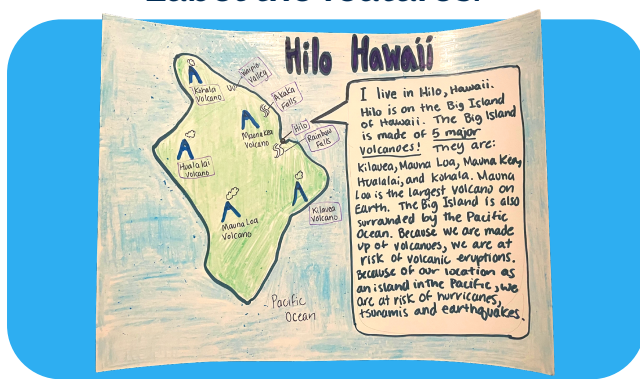 Label the features.
Hilo Hawaii
Kohala
Volcano
Waipio
Valley
Akaka
Falls
Mauna Kea
Volcano
Hilo
Rainbow
Falls
Hualalai
Volcano
Kilavea
Volcano
Mauna Loa
Volcano
Pacific
Ocean
I live in Hilo, Hawaii.
Hilo is on the Big Island
of Hawaii. The Big Island
is made of 5 major
volcanoes! They are:
Kilavea, Mauna Loa, Mauna Kea,
Hualalai, and Kohala. Mauna
Loa is the largest volcano on
Earth. The Big Island is also
surrounded by the Pacific
Ocean. Because we are made
up of volcanoes, we are at
risk of volcanic eruptions.
Because of our location as
an island in the Pacific, we
are at risk of hurricanes,
tsunamis and earthquakes.